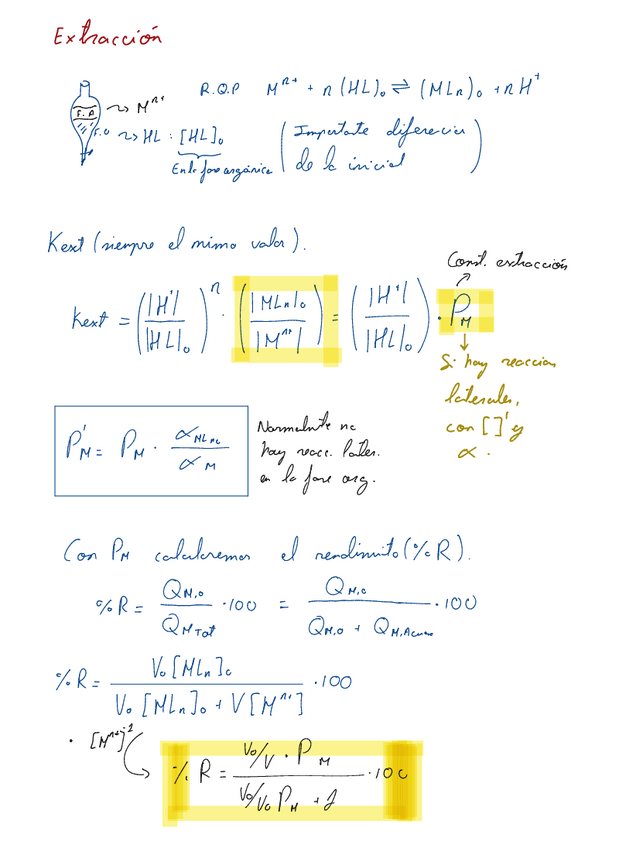 Extracción
R.Q.P M^n+ + n (HL)₀ ⇌ (MLn)₀ + nH⁺
F.A → M^n+
F.O → HL : [HL]₀
En la fase orgánica
(Importante diferenciar
de la inicial)
Kext (siempre el mimo valor).
Const. extracción
Kext = (|H⁺| / |HL|₀)^n · (|MLn|₀ / |M^n+|) = (|H⁺| / |HL|₀) · P_M
Si hay reaccion
laterales,
con []' y
α.
P'_M = P_M · α_MLn,o / α_M
Normalmente no
hay reacc. later.
en la fase org.
Con P_M calcularemos el rendimito (% R).
% R = Q_M,o / Q_M Tot · 100 = Q_M,o / (Q_M,o + Q_M,Acuoso) · 100
% R = V₀ [MLn]₀ / (V₀ [MLn]₀ + V [M^n+]) · 100
· [M^n+]^-1
% R = (V₀/V · P_M) / (V₀/V₀ P_M + 1) · 100